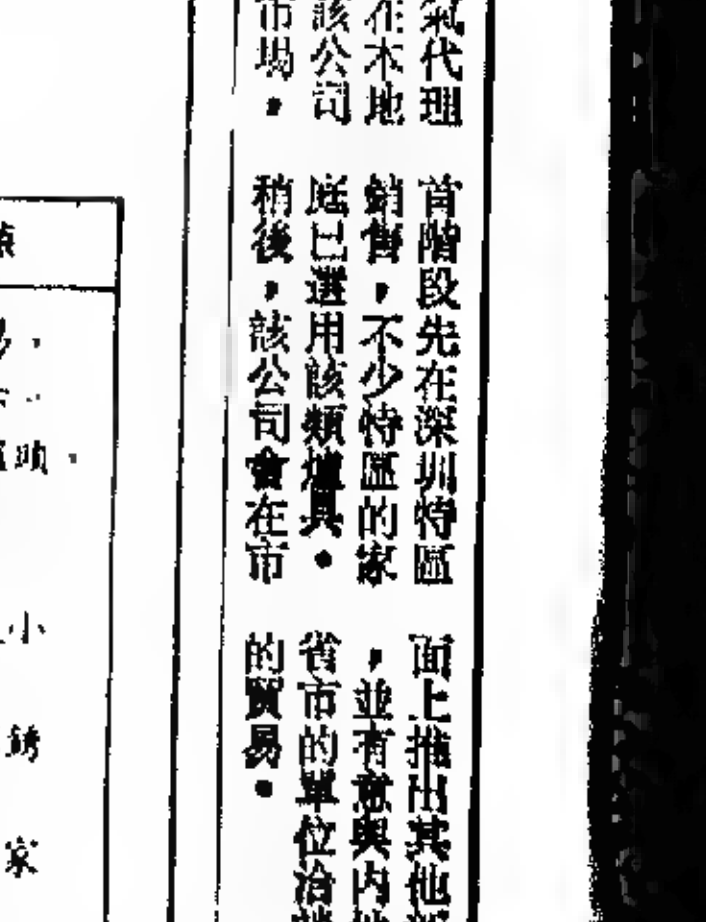 氣代理
在本地
該公司
市場，
首階段先在深圳特區
銷售，不少特區的家
庭已選用該類爐具。
稍後，該公司會在市
面上推出其他
，並有意與內地
省市的單位洽
的貿易。
小
銹
家